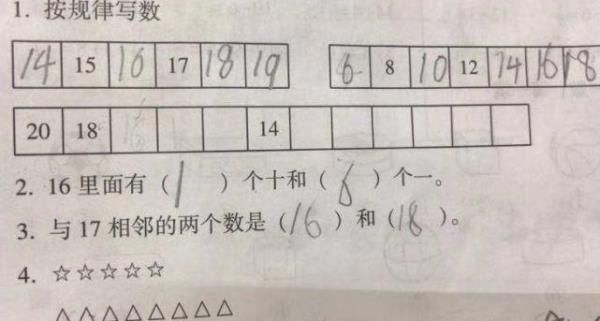 1. 按规律写数
14 15 16 17 18 19 6 8 10 12 14 16 18
20 18 14
2. 16 里面有（1）个十和（6）个一。
3. 与 17 相邻的两个数是（16）和（18）。
4. ☆☆☆☆☆
△△△△△△△△